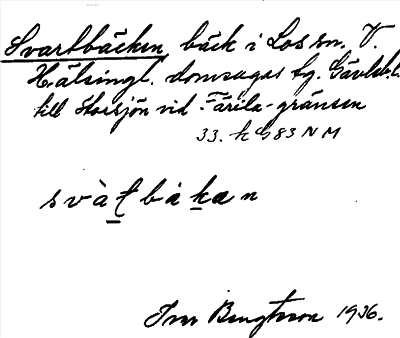 Svartbäcken, bäck i Los sn. V.
Hälsingl. domsagas tg. Gävleb. l.
till Storsjön vid Färila-gränsen
33. h G 83 N M
svàtbákan
Bengtsson 1936.